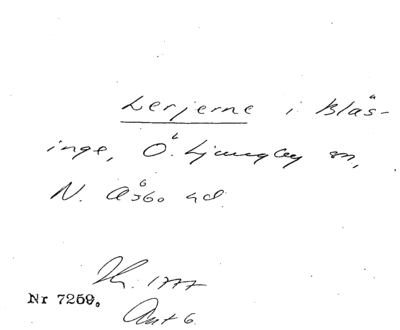 Lerjerne i Blås-
inge, Ö. Ljungby sn,
N. Åsbo hd.
1777
Nr 7259.
Ant 6.